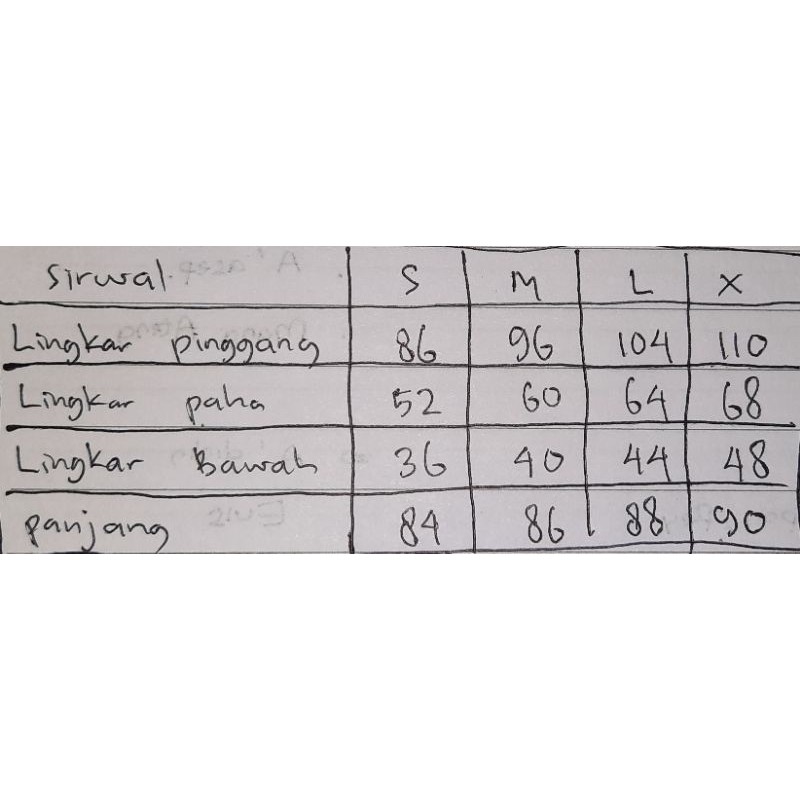 Sirwal. S M L X
Lingkar pinggang 86 96 104 110
Lingkar paha 52 60 64 68
Lingkar Bawah 36 40 44 48
panjang 84 86 88 90